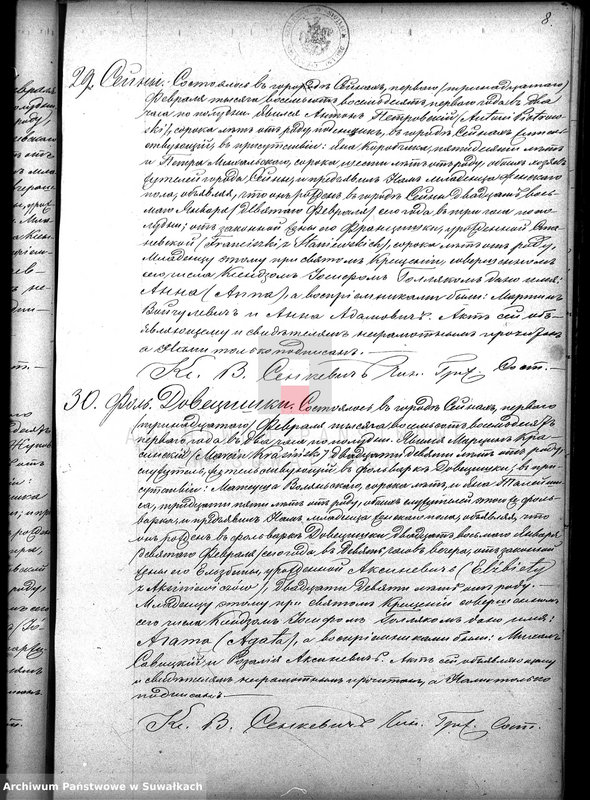 8.
29. Сейны. Состоялось въ городѣ Сейнахъ, перваго /тринадцатаго/
Февраля тысяча восемьсотъ восемьдесятъ перваго года въ два
часа по полудни. Явился Антонъ Петровскій /Antoni Piotrow-
ski/, сорока лѣтъ отъ роду, поденщикъ, въ городѣ Сейнахъ
жительствующій, въ присутствіи: Яна пятидесяти лѣтъ
и Петра сорока шести лѣтъ отъ роду, обоихъ
города Сейны, и предъявилъ Намъ младенца женскаго
пола, объявляя, что онъ рожденъ въ городѣ Сейны двадцать вось-
маго Января /девятаго Февраля/ сего года въ три часа попо-
лудни; отъ законной жены его Франтишки, урожденной Ста-
невской /Franciszki z Staniewskich/, сорока лѣтъ отъ роду.
Младенцу этому при святомъ Крещеніи, совершенномъ
сего числа Ксендзомъ Іосифомъ Голлякомъ дано имя:
Анна (Anna), а воспріемниками были: Мартинъ
Войчулевичъ и Анна Адамовичъ. Актъ сей объ-
являющему и свидѣтелямъ неграмотнымъ прочитанъ,
а Нами только подписанъ.
Кс. В. Сенкевичъ Чин. Грж. Сост.
30. Фоль. Довецишки. Состоялось въ городѣ Сейнахъ, перваго
/тринадцатаго/ Февраля тысяча восемьсотъ восемьдесятъ
перваго года въ два часа по полудни. Явился Марцинъ Кра-
синскій /Marcin Krasiński/ двадцати девяти лѣтъ отъ роду,
служитель, жительствующій въ фольваркѣ Довецишки; въ при-
сутствіи: Матеуша сорока лѣтъ, и Яна
тридцати пяти лѣтъ отъ роду, обоихъ служителей этого фоль-
варка, и предъявилъ Намъ младенца женскаго пола, объявляя, что
онъ рожденъ въ фольваркѣ Довецишки двадцать восьмаго Января
/девятаго Февраля/ сего года, въ девять часовъ вечера; отъ законной
жены его Елзбѣты, урожденной Аксиневичъ (Elżbiety
z Aksiniewiczów), двадцати девяти лѣтъ отъ роду.
Младенцу этому при святомъ Крещеніи совершенномъ
сего числа Ксендзомъ Іосифомъ Голлякомъ дано имя:
Агата (Agata), а воспріемниками были:
Савицкій и Розалія Аксиневичъ. Актъ сей объявляющему
и свидѣтелямъ неграмотнымъ прочитанъ, а Нами только
подписанъ
Кс. В. Сенкевичъ Чин. Грж. Сост.
Archiwum Państwowe w Suwałkach